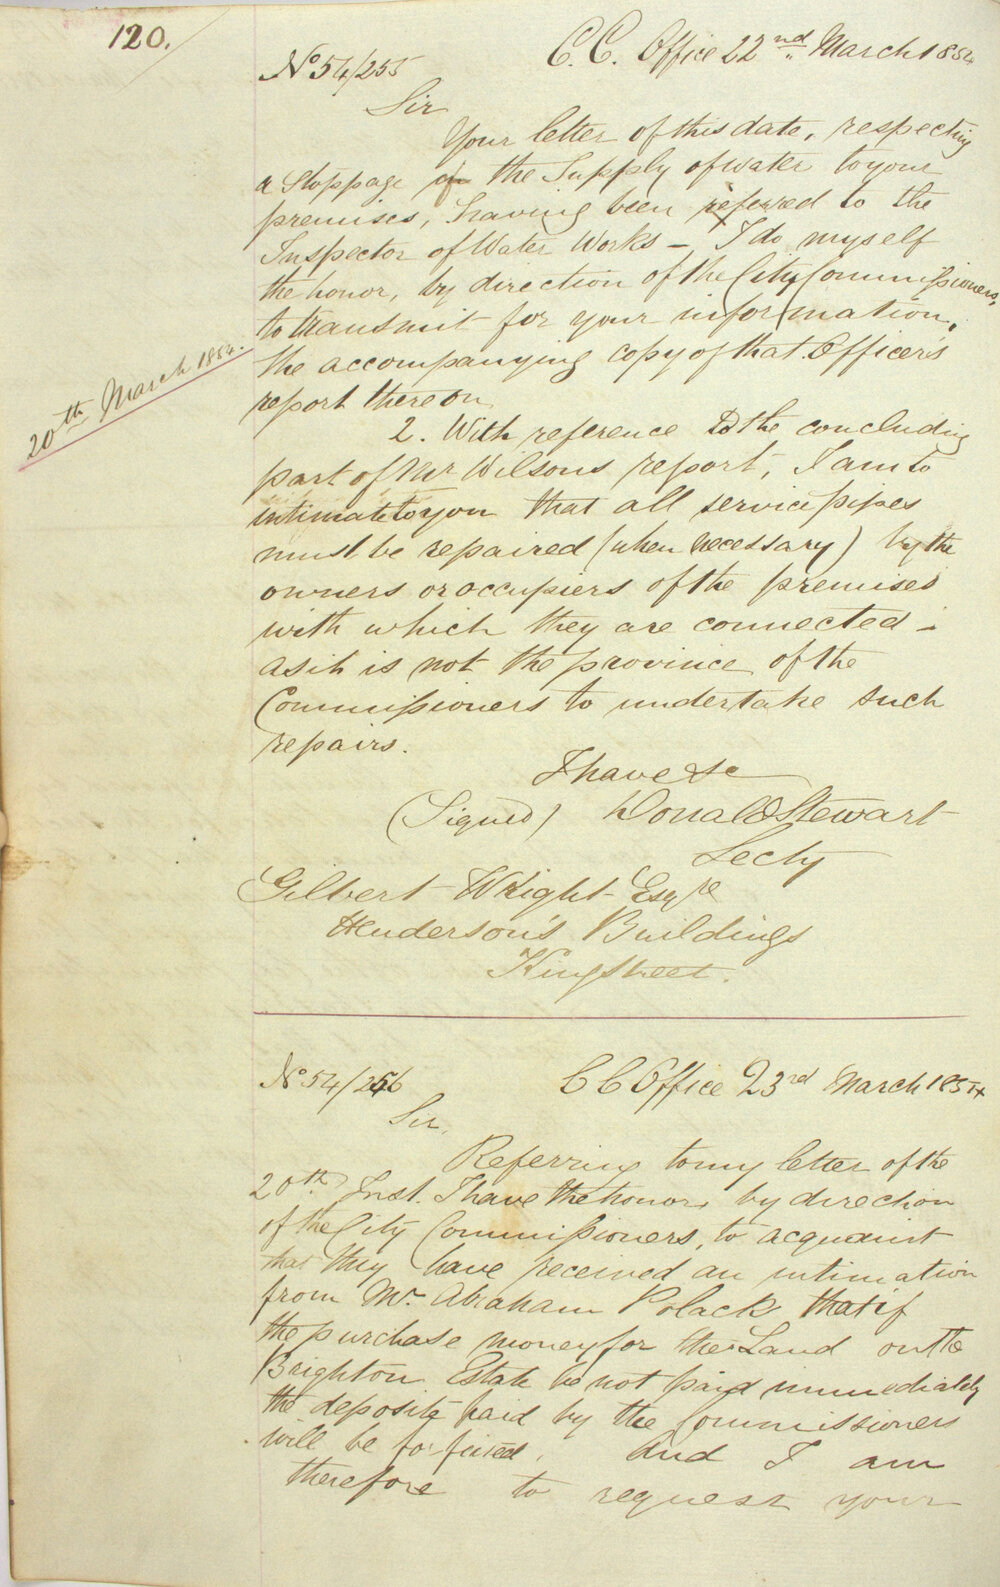 120.
No 54/255
C.C. Office 22nd March 1854
Sir
Your letter of this date, respecting
a stoppage in the Supply of water to your
premises, having been referred to the
Inspector of Water Works – I do myself
the honor, by direction of the City Commissioners,
to transmit for your information,
the accompanying copy of that Officer's
20th March 1854.
report thereon
2. With reference to the concluding
part of Mr Wilsons report, I am to
intimate to you that all service pipes
must be repaired (when necessary) by the
owners or occupiers of the premises
with which they are connected –
as it is not the province of the
Commissioners to undertake such
repairs.
I have &c
(Signed) Donald Stewart
Secty
Gilbert Wright Esqre
Henderson's Buildings
King Street.
No 54/256
C C Office 23rd March 1854
Sir,
Referring to my letter of the
20th Inst. I have the honor, by direction
of the City Commissioners, to acquaint
that they have received an intimation
from Mr. Abraham Polack that if
the purchase money for the Land on the
Brighton Estate be not paid immediately
the deposit paid by the Commissioners
will be forfeited, And I am
therefore to request your